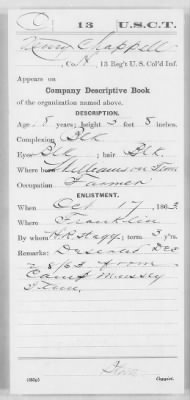 C 13 U.S.C.T.
Henry Chappell
Co. H, 13 Reg't U.S. Col'd Inf.
Appears on
Company Descriptive Book
of the organization named above.
DESCRIPTION.
Age 18 years; height 5 feet 8 inches.
Complexion Blk
Eyes Blk; hair Blk.
Where born Williamson Tenn
Occupation Farmer
ENLISTMENT.
When Oct 17, 1863
Where Franklin
By whom; term 3 y'rs.
Remarks: Deserted Dec
8/63 from
Camp
Tenn.
Copyist.